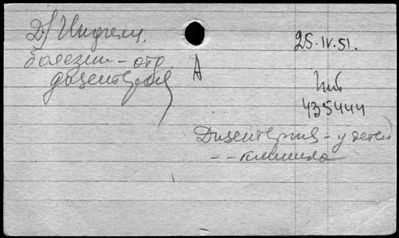 Д/ Инфекц.
болезни – отр.
дизентерия
А
25.IV.51.
435444
Дизентерия – у детей
– – клиника